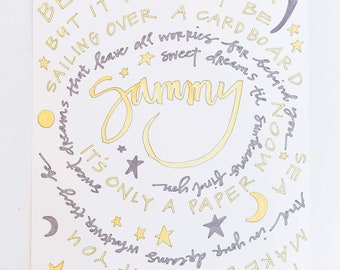 BE
BUT IT BE
SAILING OVER A CARDBOARD
SEA
sweet dreams that leave all worries far behind you
sweet dreams til sunbeams find you
Sammy
IT'S ONLY A PAPER MOON
And in your dreams whatever they be
MAKE
YOU